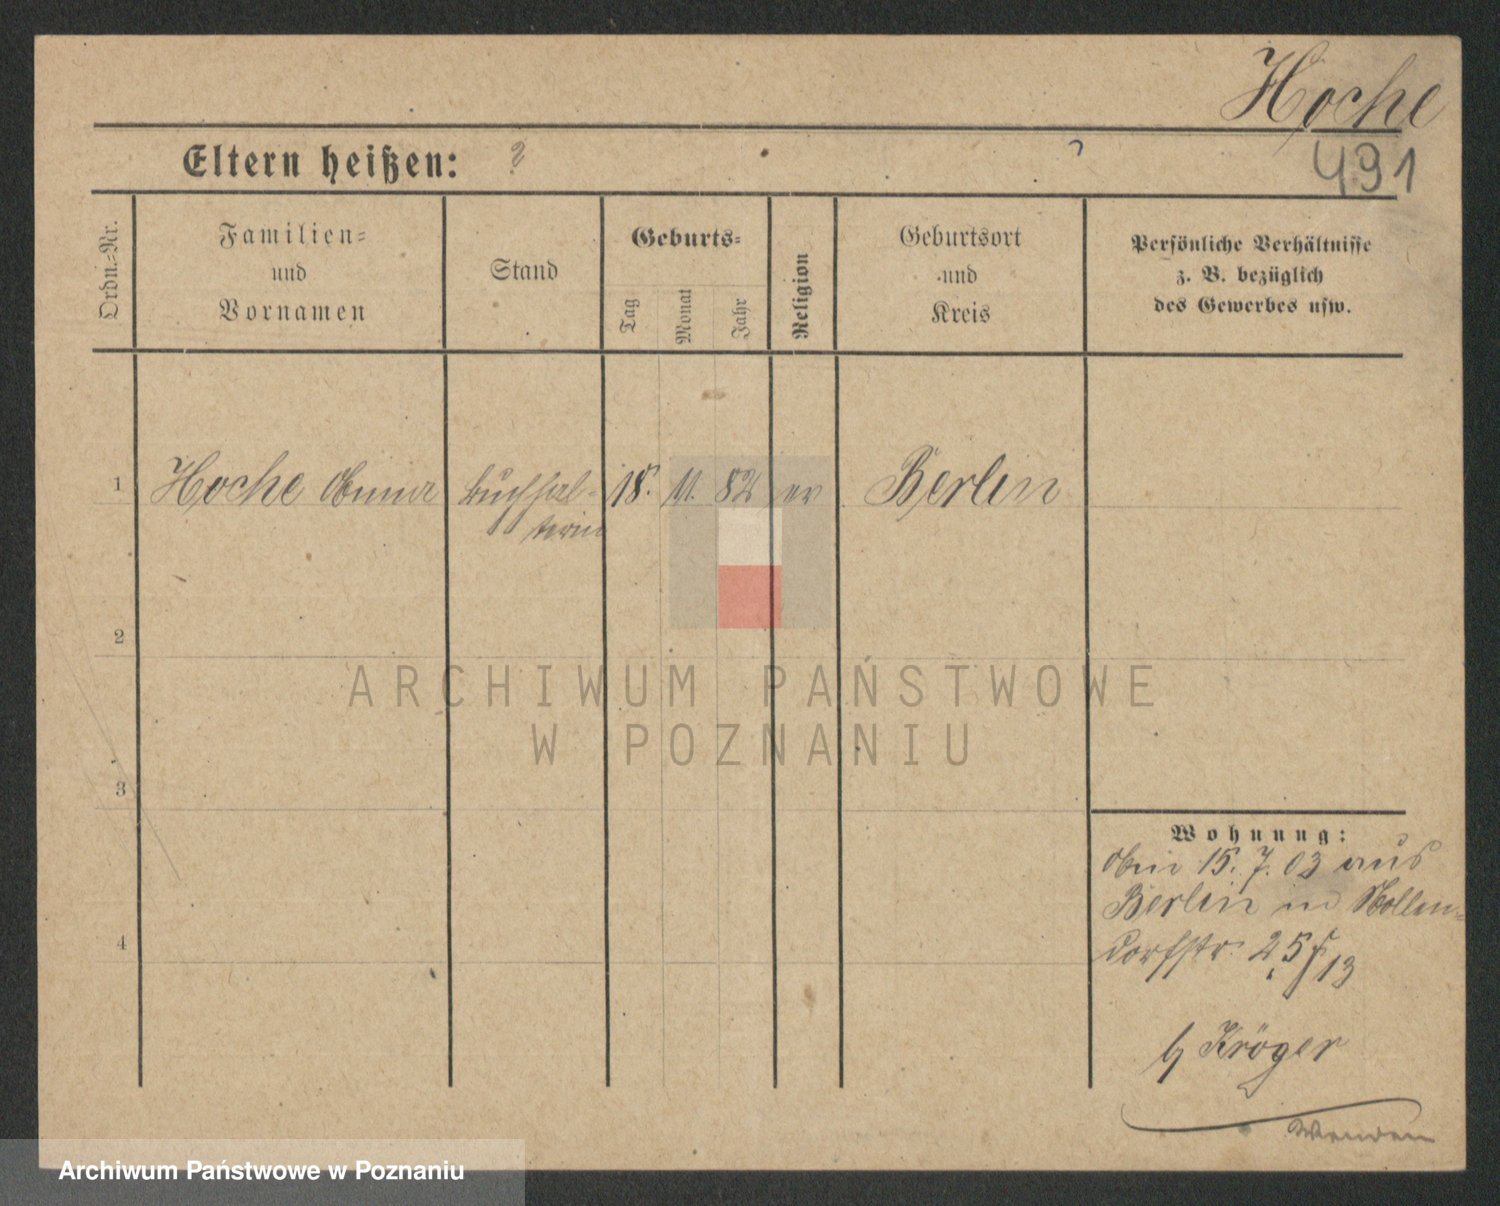 Hoche
491
Eltern heißen: ?
Ordn.-Nr.
Familien-
und
Vornamen
Stand
Geburts-
Tag
Monat
Jahr
Religion
Geburtsort
und
Kreis
Persönliche Verhältnisse
z. B. bezüglich
des Gewerbes usw.
1 Hoche Anna Buchhal- 18. 11. 82 ev Berlin
terin
2
3
4
Wohnung:
Am 15. 7. 03 aus
Berlin in Nollen-
dorfstr. 25
13
b/ Kröger
Wenden
ARCHIWUM PAŃSTWOWE
W POZNANIU
Archiwum Państwowe w Poznaniu